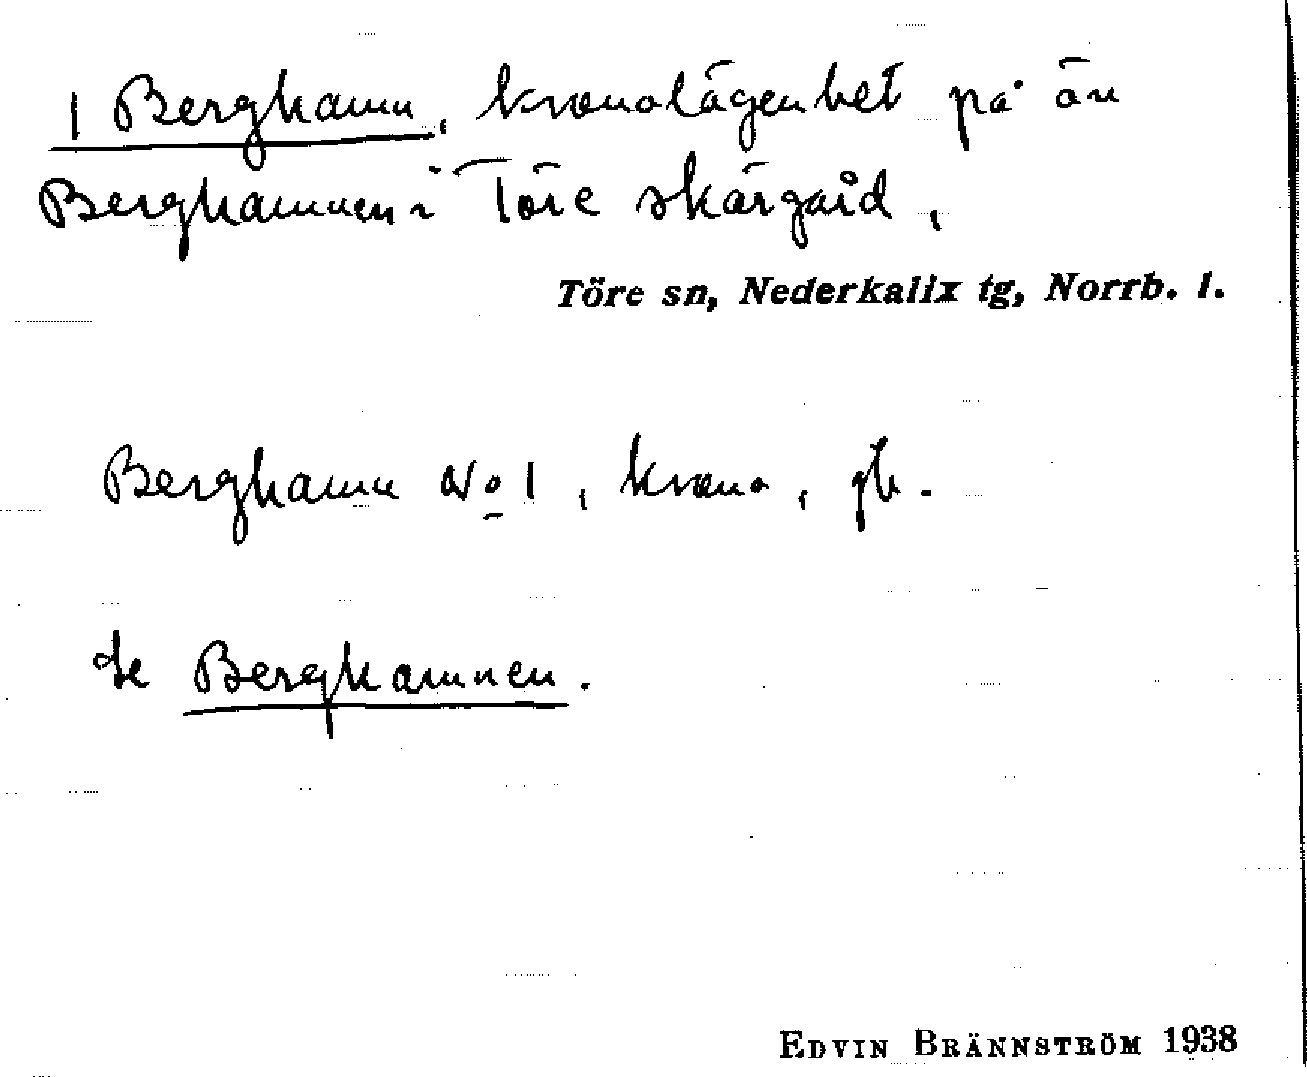 1 Berghamn, kronolägenhet på ön
Berghamnen i Töre skärgård,
Töre sn, Nederkalix tg, Norrb. l.
Berghamn No 1, krono, gb.
Se Berghamnen.
EDVIN BRÄNNSTRÖM 1938